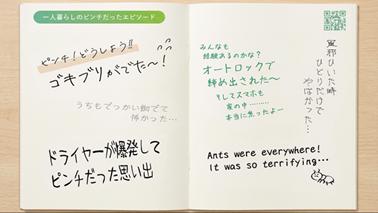 一人暮らしのピンチだったエピソード
ピンチ！どうしよう!!
ゴキブリがでた〜！
うちもでっかい蜘でて
怖かった…
ドライヤーが爆発して
ピンチだった思い出
みんなも
経験あるのかな？
オートロックで
締め出された〜
そしてスマホも
家の中………
本当に焦ったよー
風邪ひいた時
ひとりだけで
やばかった…
Ants were everywhere!
It was so terrifying...